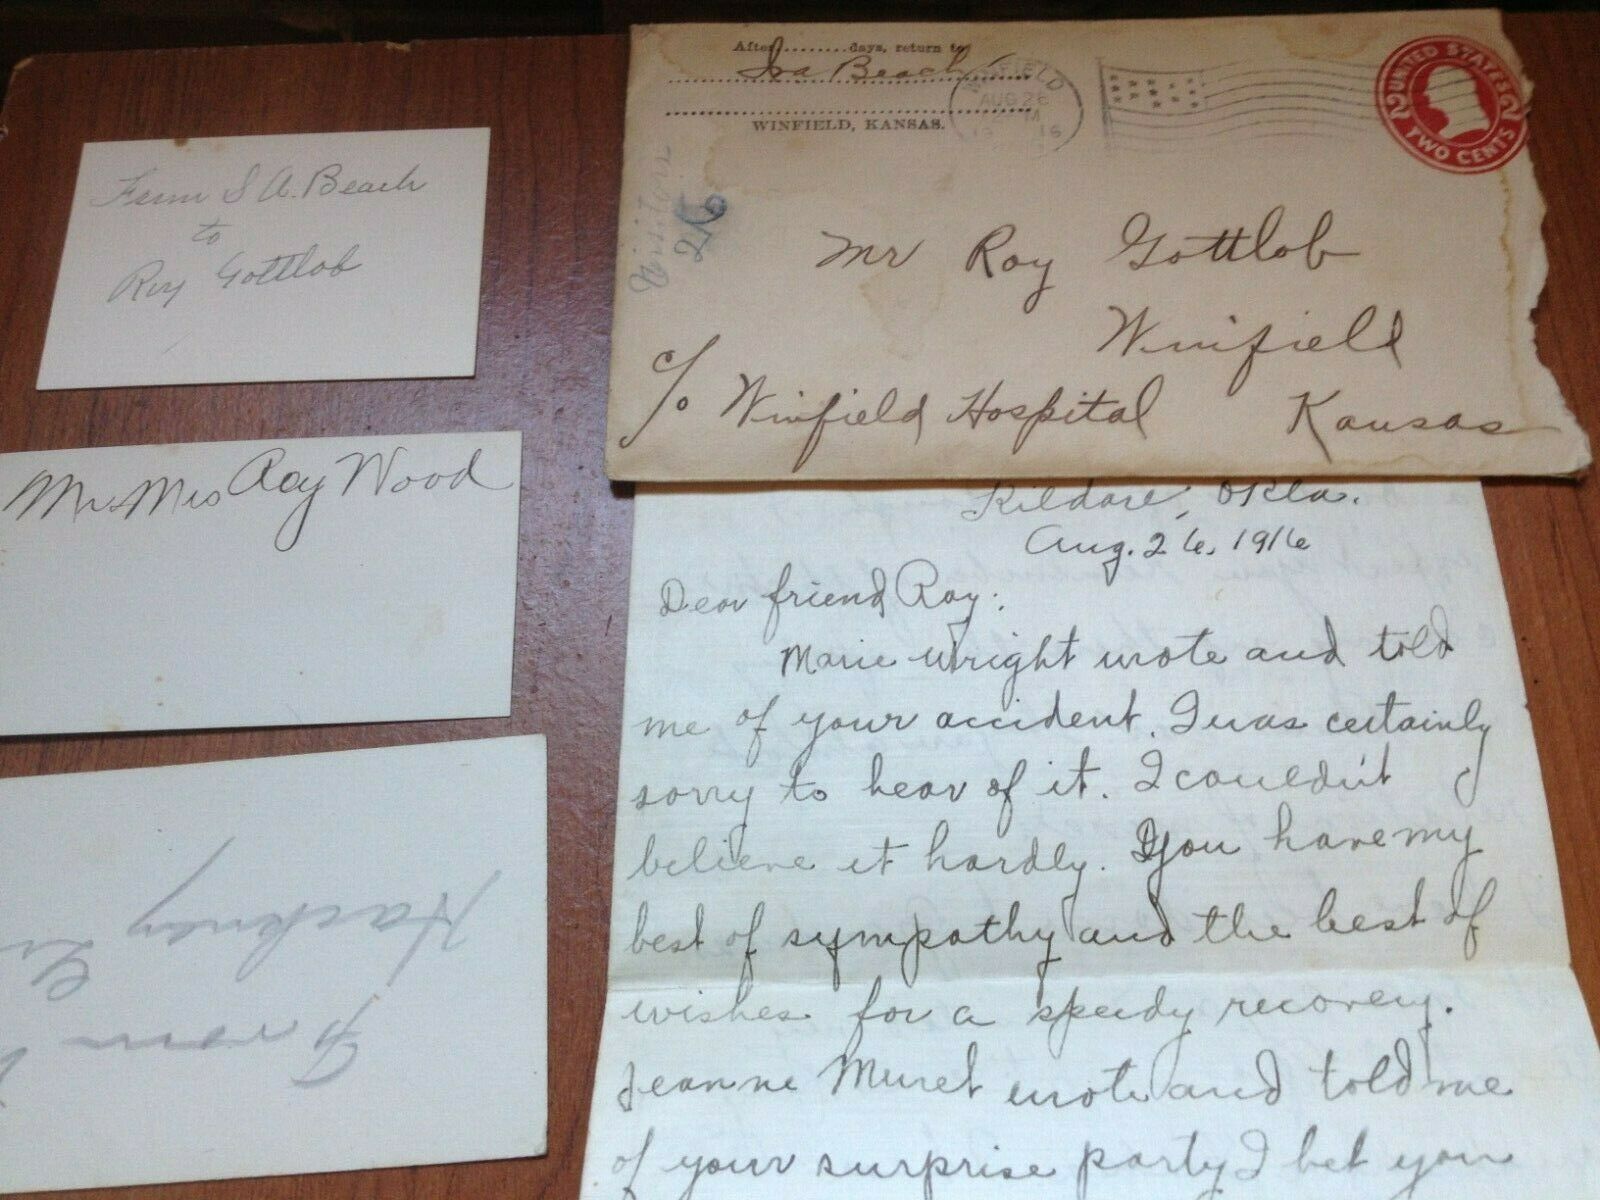 From S A. Beach
to
Roy Gottlob
Mr & Mrs Roy Wood
From
Hackney
After.........days, return to
Ira Beach
WINFIELD, KANSAS.
WINFIELD
AUG 26
M
1916
UNITED STATES
2 2
TWO CENTS
Visitors
216
Mr Roy Gottlob
Winfield
c/o Winfield Hospital Kansas
Kildare, Okla.
Aug. 26, 1916
Dear friend Roy:
Marie Wright wrote and told
me of your accident. I was certainly
sorry to hear of it. I couldn't
believe it hardly. You have my
best of sympathy and the best of
wishes for a speedy recovery.
Jeanne Muret wrote and told me
of your surprise party I bet you